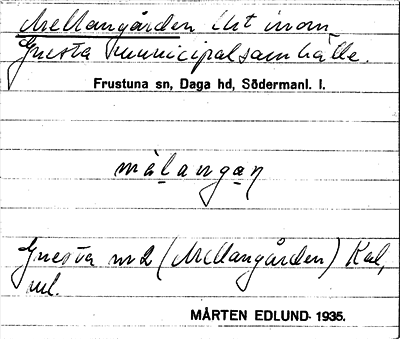 Mellangården Ht inom
Gnesta municipalsamhälle.
Frustuna sn, Daga hd, Södermanl. l.
mälangaŋ
Gnesta nr 2 (Mellangården) Kal,
ul.
MÅRTEN EDLUND 1935.